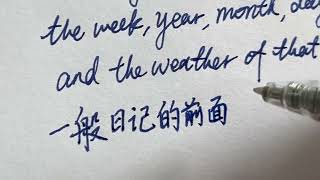 the week, year, month, day
and the weather of that
一般日记的前面